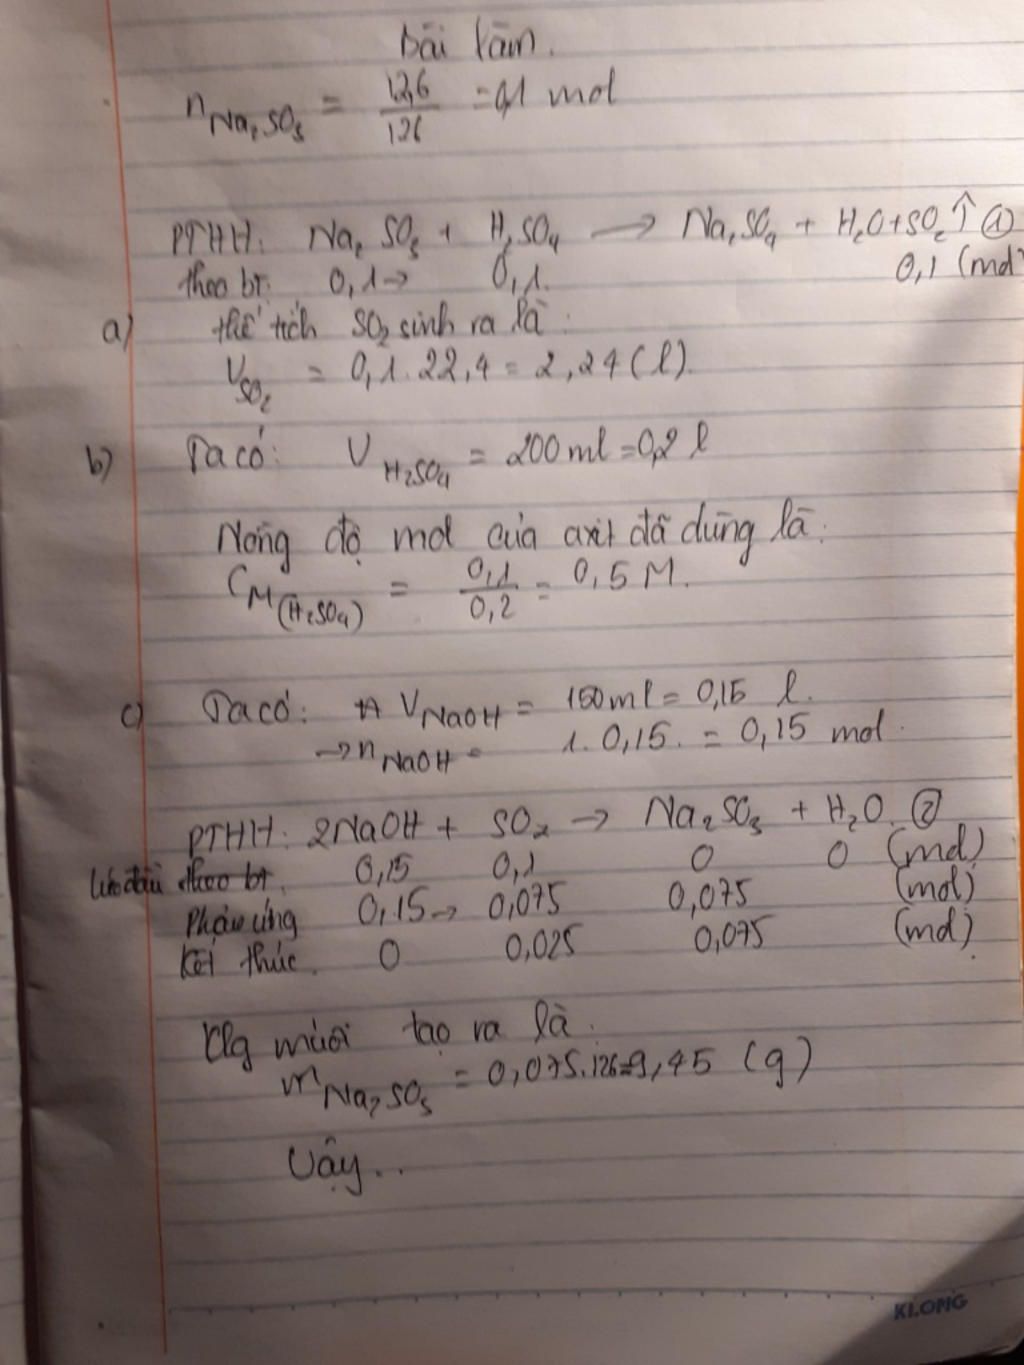 bài làm.
nNa₂SO₃ = 12,6/126 = 0,1 mol
PTHH: Na₂SO₃ + H₂SO₄ → Na₂SO₄ + H₂O + SO₂↑ ①
theo bt: 0,1→ 0,1. 0,1 (mol)
a) thể tích SO₂ sinh ra là:
VSO₂ = 0,1.22,4 = 2,24 (l).
b) Ta có: V H₂SO₄ = 200ml = 0,2 l
Nồng độ mol của axit đã dùng là:
CM(H₂SO₄) = 0,1/0,2 = 0,5 M.
c) Ta có: VNaOH = 150ml = 0,15 l.
→ nNaOH = 1. 0,15. = 0,15 mol.
PTHH: 2NaOH + SO₂ → Na₂SO₃ + H₂O. ②
theo bt. 0,15 0,1 0 0 (mol)
Phản ứng 0,15→ 0,075 0,075 (mol)
Kết thúc. 0 0,025 0,075 (mol).
klg muối tạo ra là:
mNa₂SO₃ = 0,075.126=9,45 (g)
Vậy..
KLONG